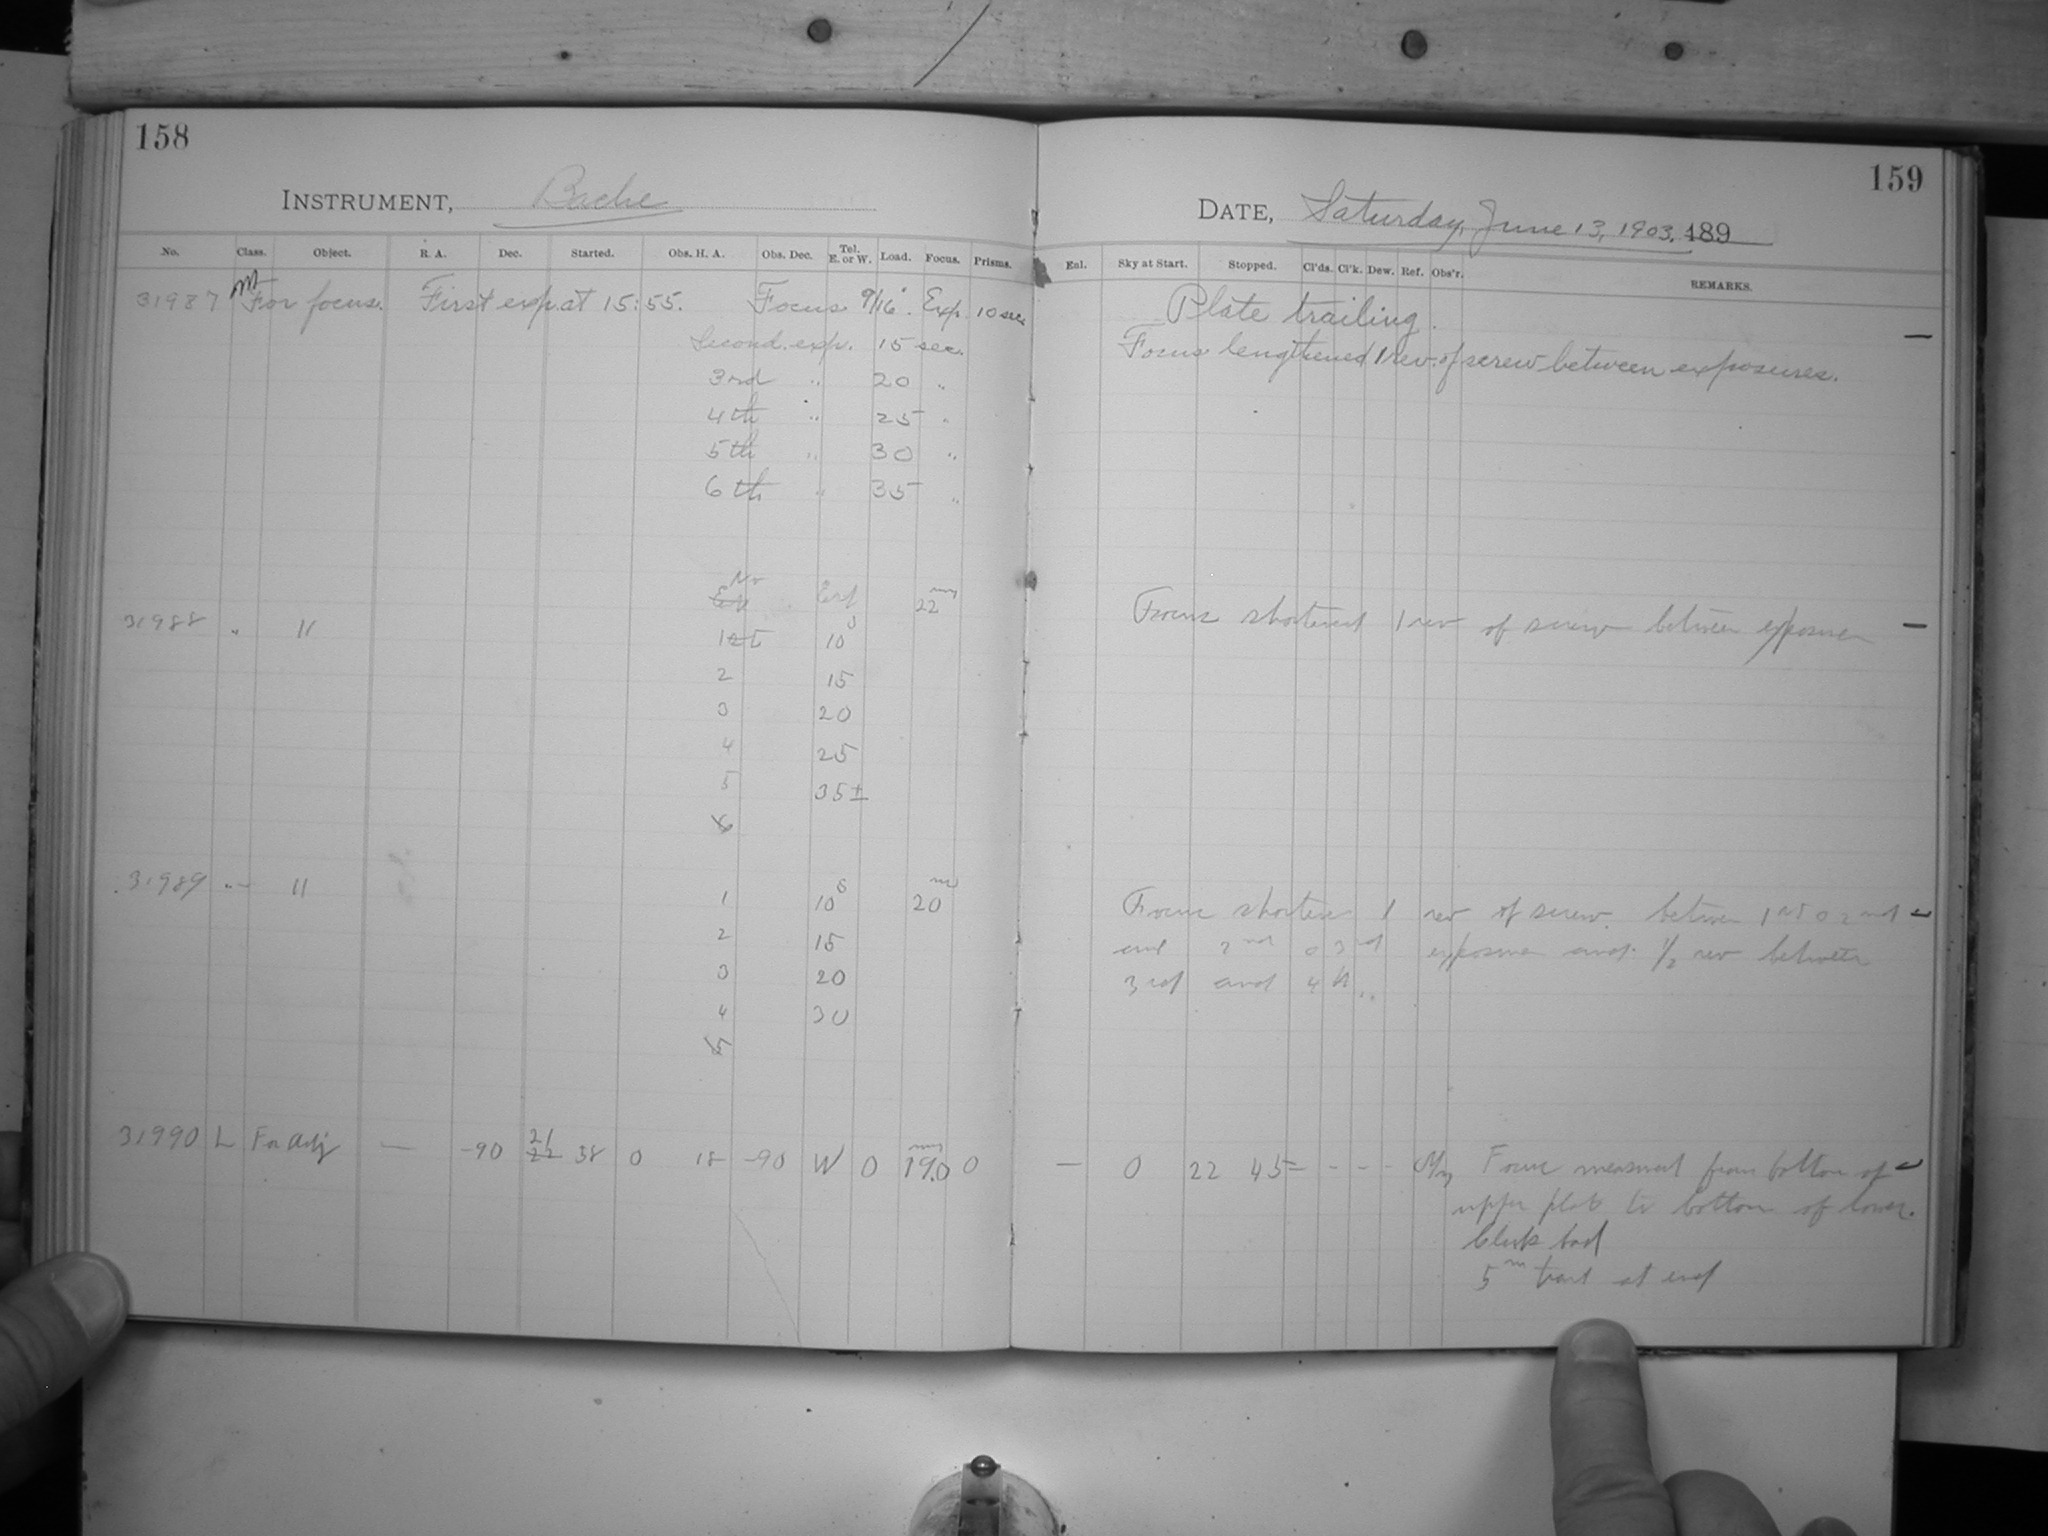 158
INSTRUMENT, Bache
No. Class. Object. R. A. Dec. Started. Obs. H. A. Obs. Dec. Tel. E. or W. Load. Focus. Prisms.
31987 M For focus. First exp. at 15:55. Focus 9/16". Exp. 10 sec
Second. exp. 15 sec.
3rd " 20 "
4th " 25 "
5th " 30 "
6th " 35 "
No
Exp Exp 22 mm
31988 " " 1st 10 s
2 15
3 20
4 25
5 35±
6
31989 " " 1 10 s 20 mm
2 15
3 20
4 30
5
31990 L For Adj — -90 21 22 38 0 18 -90 W 0 19.0 mm 0
159
DATE, Saturday, June 13, 1903. 189
Enl. Sky at Start. Stopped. Cl'ds. Cl'k. Dew. Ref. Obs'r. REMARKS.
Plate trailing. —
Focus lengthened 1 rev. of screw between exposures.
Focus shortened 1 rev of screw between exposures —
Focus shortened 1 rev of screw. between 1st & 2nd –
and 2nd & 3rd exposure and 1/2 rev between
3rd and 4th..
— 0 22 45 = - - - Focus measured from bottom of –
upper plate to bottom of lower.
Clock bad
5 m trail at end